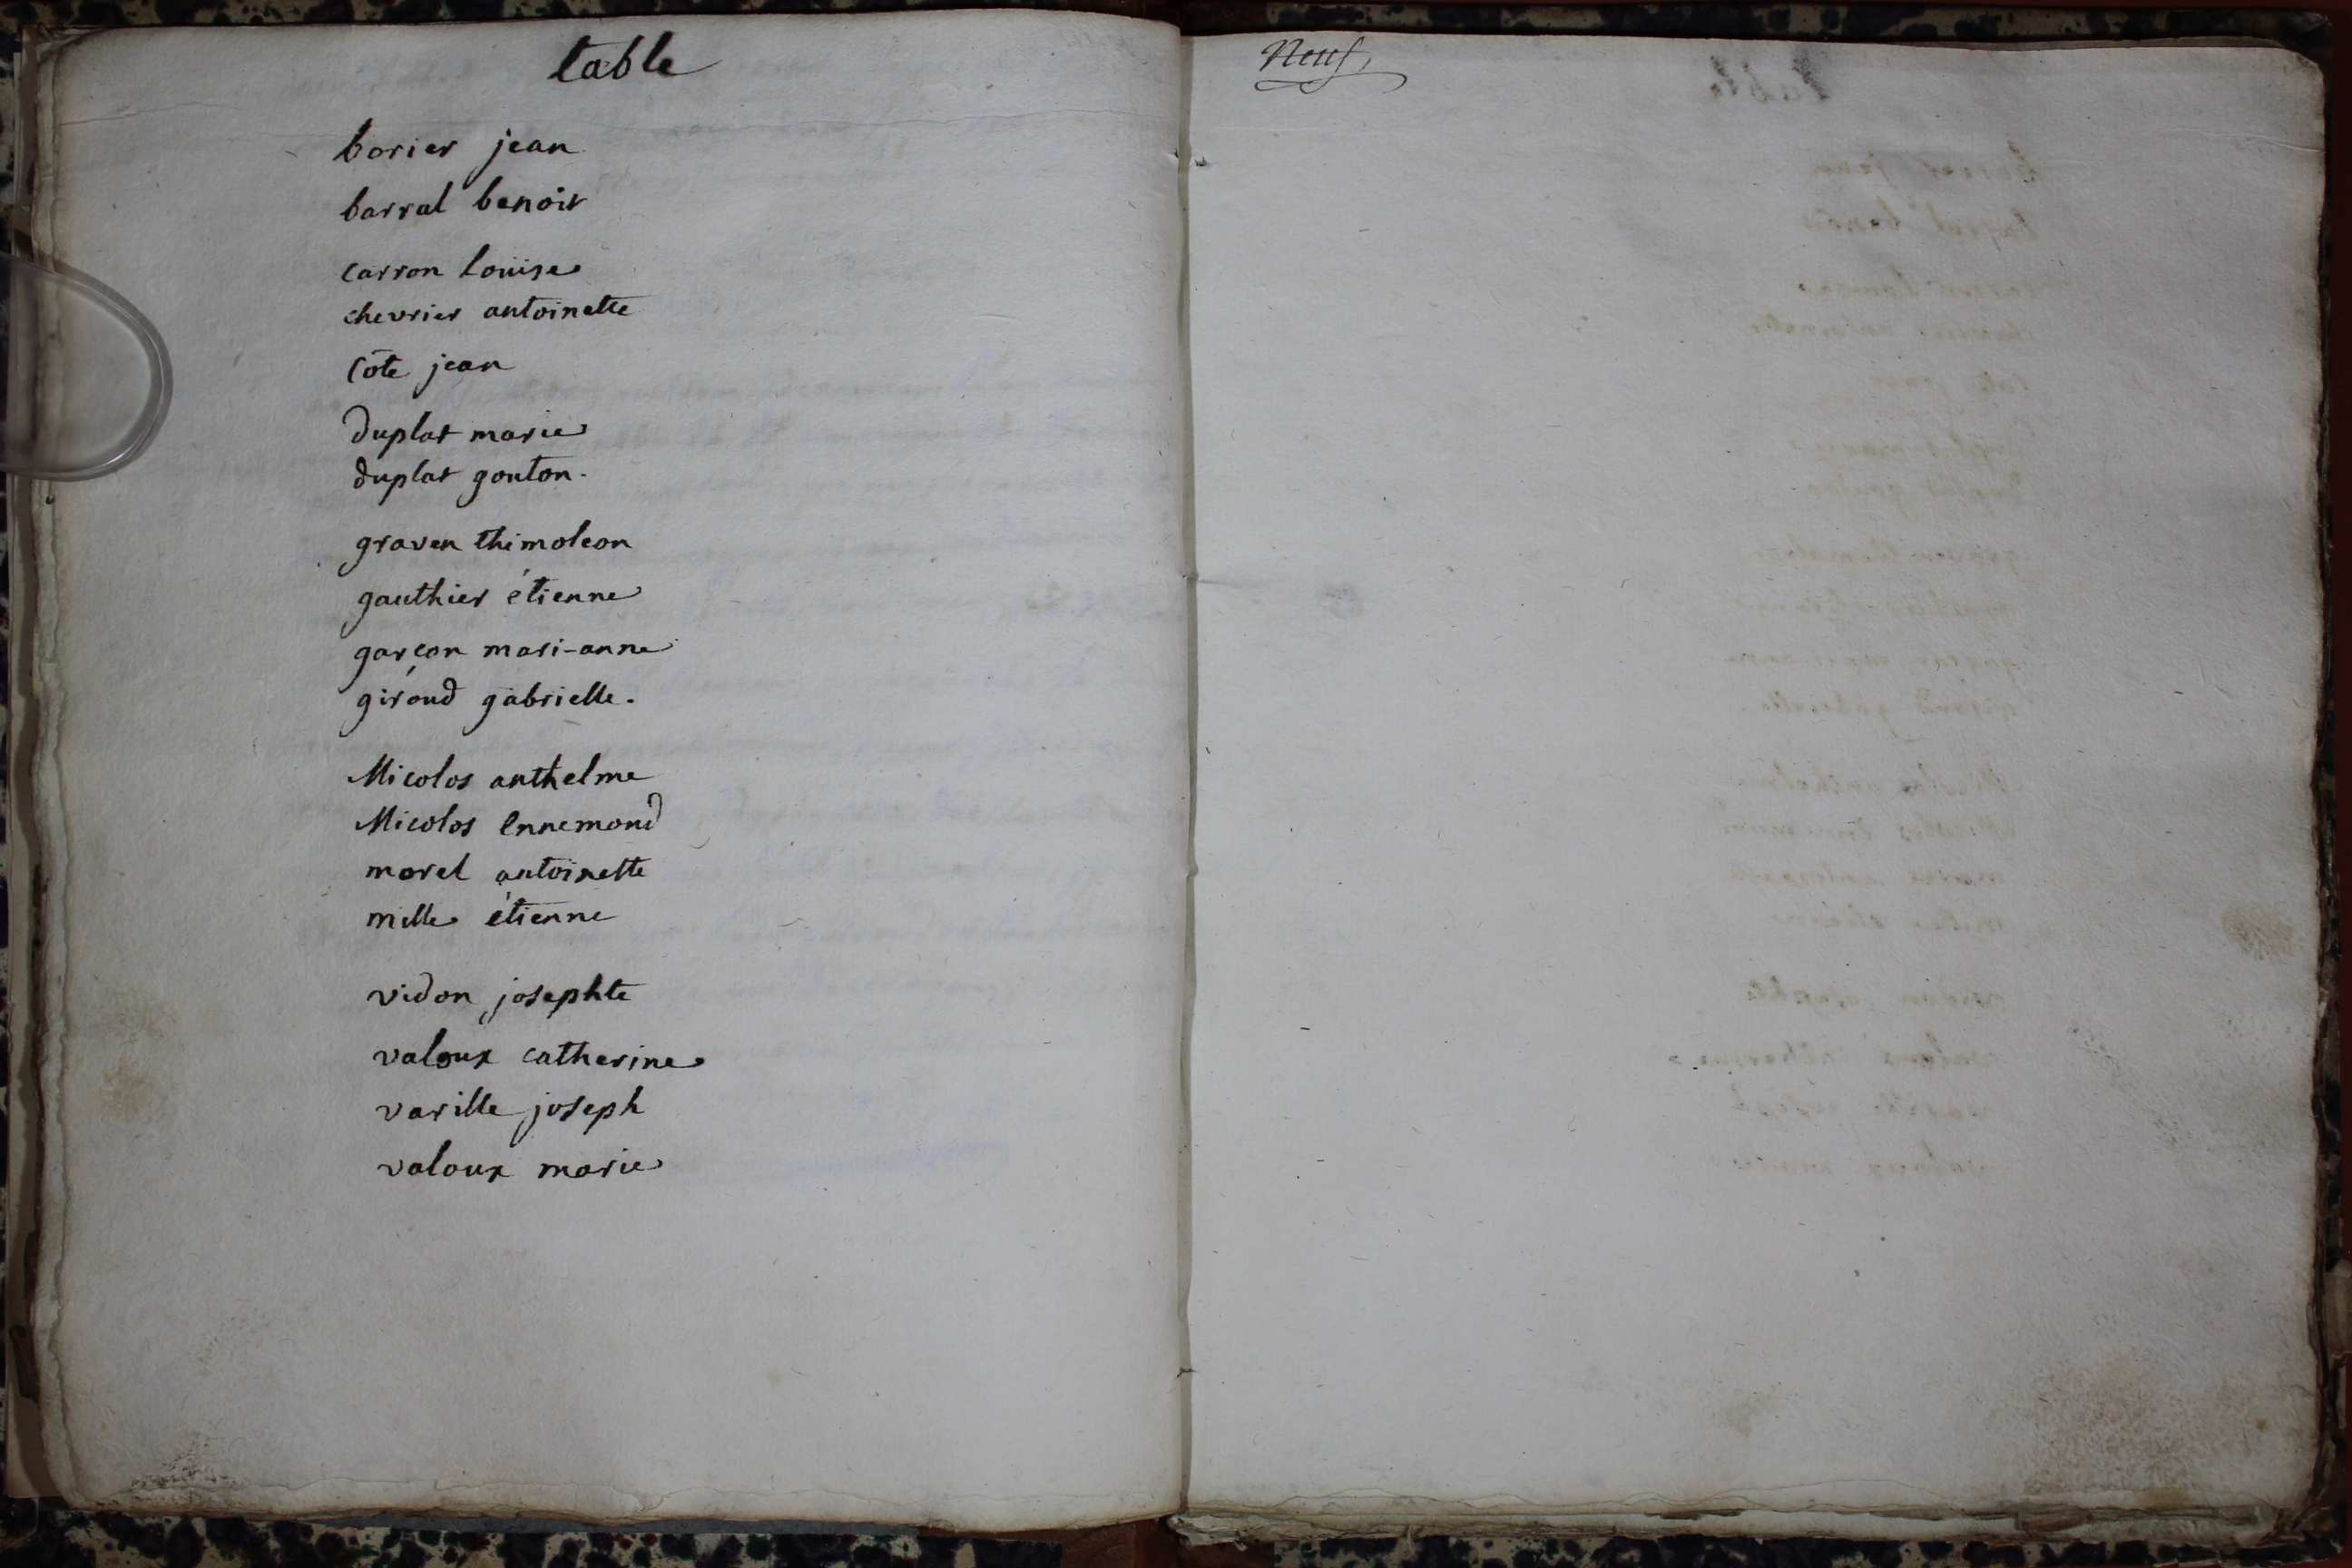 table
borier jean
barral benoit
carron louise
chevrier antoinette
Côte jean
duplat marie
duplat gonton.
graven thimoleon
gauthier étienne
garçon mari-anne
giroud gabrielle.
Micolos anthelme
Micolos Ennemond
morel antoinette
mille étienne
vidon josephte
valoux catherine
varille joseph
valoux marie
Neuf,